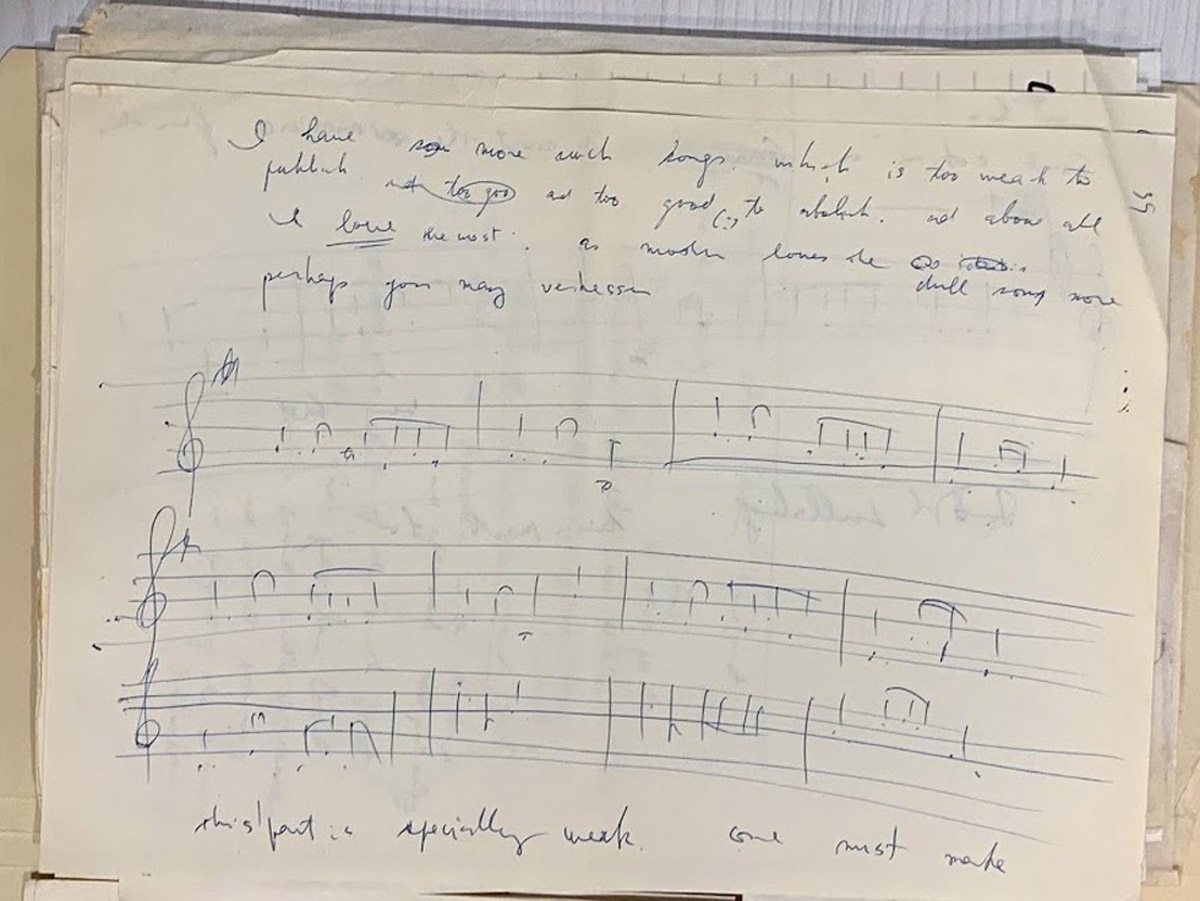 I have more such songs. which is too weak to
publish. not too goo ad too good (:) to abolish. ad above all
I love the most. as loves the
perhaps you may dull song more
this part is specially weak. one must make